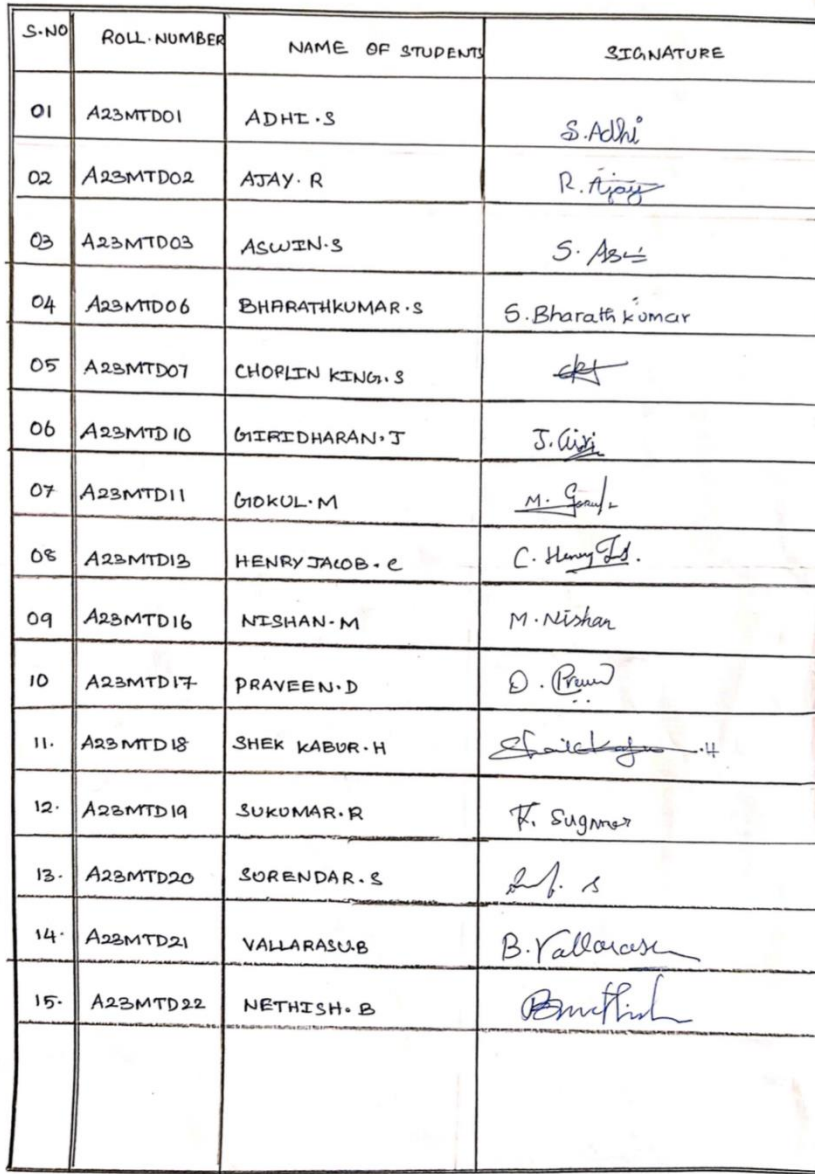 S.NO ROLL.NUMBER NAME OF STUDENTS SIGNATURE
01 A23MTD01 ADHI.S S.Adhi
02 A23MTD02 AJAY.R R.Ajay
03 A23MTD03 ASWIN.S S.
04 A23MTD06 BHARATHKUMAR.S S.Bharath kumar
05 A23MTD07 CHOPLIN KING.S
06 A23MTD10 GIRIDHARAN.J J.Giri
07 A23MTD11 GOKUL.M M.
08 A23MTD13 HENRY JACOB.C C. Henry
09 A23MTD16 NISHAN.M M.Nishan
10 A23MTD17 PRAVEEN.D D.
11. A23MTD18 SHEK KABUR.H .H
12. A23MTD19 SUKUMAR.R
13. A23MTD20 SURENDAR.S S
14. A23MTD21 VALLARASU.B B.Vallarasu
15. A23MTD22 NETHISH.B